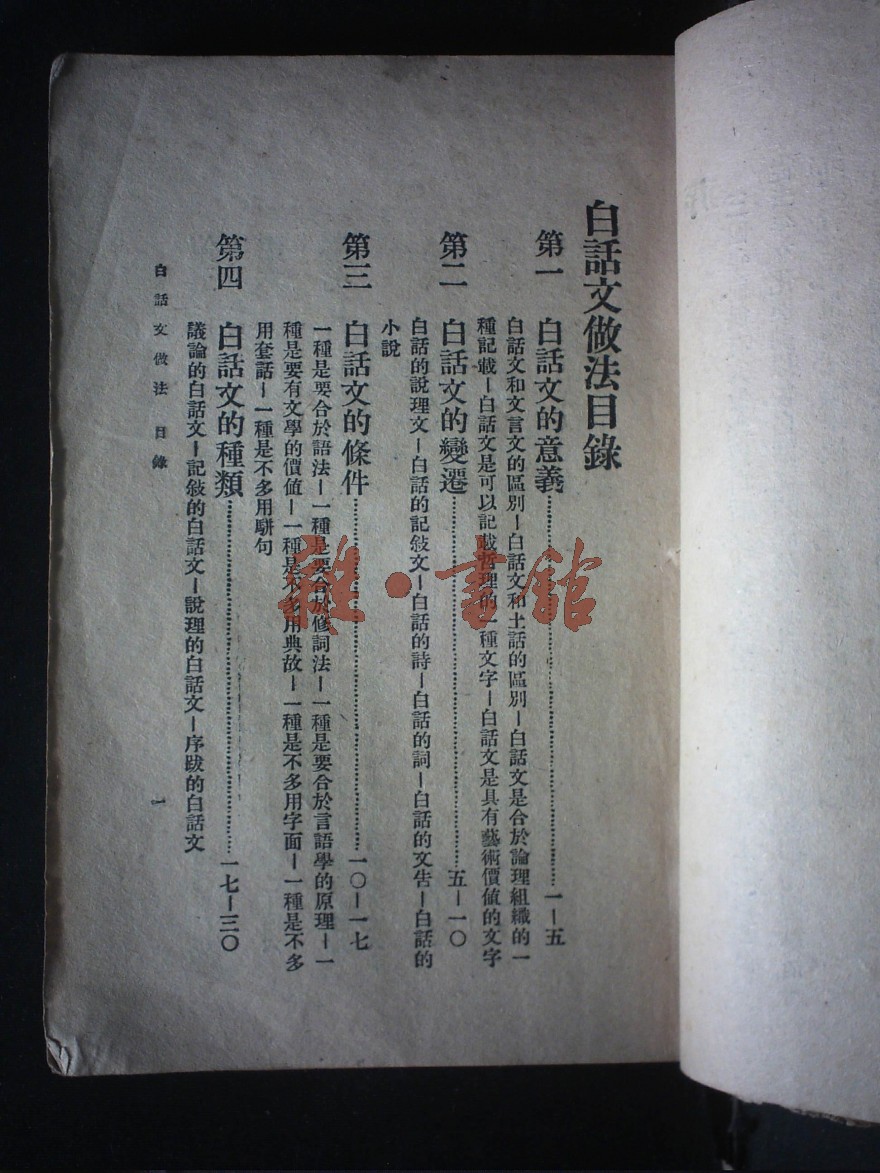 白話文做法目錄
第一 白話文的意義……一—五
白話文和文言文的區別—白話文和土話的區別—白話文是合於論理組織的一
種記載—白話文是可以記載哲理的一種文字—白話文是具有藝術價值的文字
第二 白話文的變遷……五—一〇
白話的說理文—白話的記敍文—白話的詩—白話的詞—白話的文告—白話的
小說
第三 白話文的條件……一〇—一七
一種是要合於語法—一種是要合於修詞法—一種是要合於言語學的原理—一
種是要有文學的價值—一種是不多用典故—一種是不多用字面—一種是不多
用套話—一種是不多用駢句
第四 白話文的種類……一七—三〇
議論的白話文—記敍的白話文—說理的白話文—序跋的白話文
白話文做法 目錄 一
雜·書館